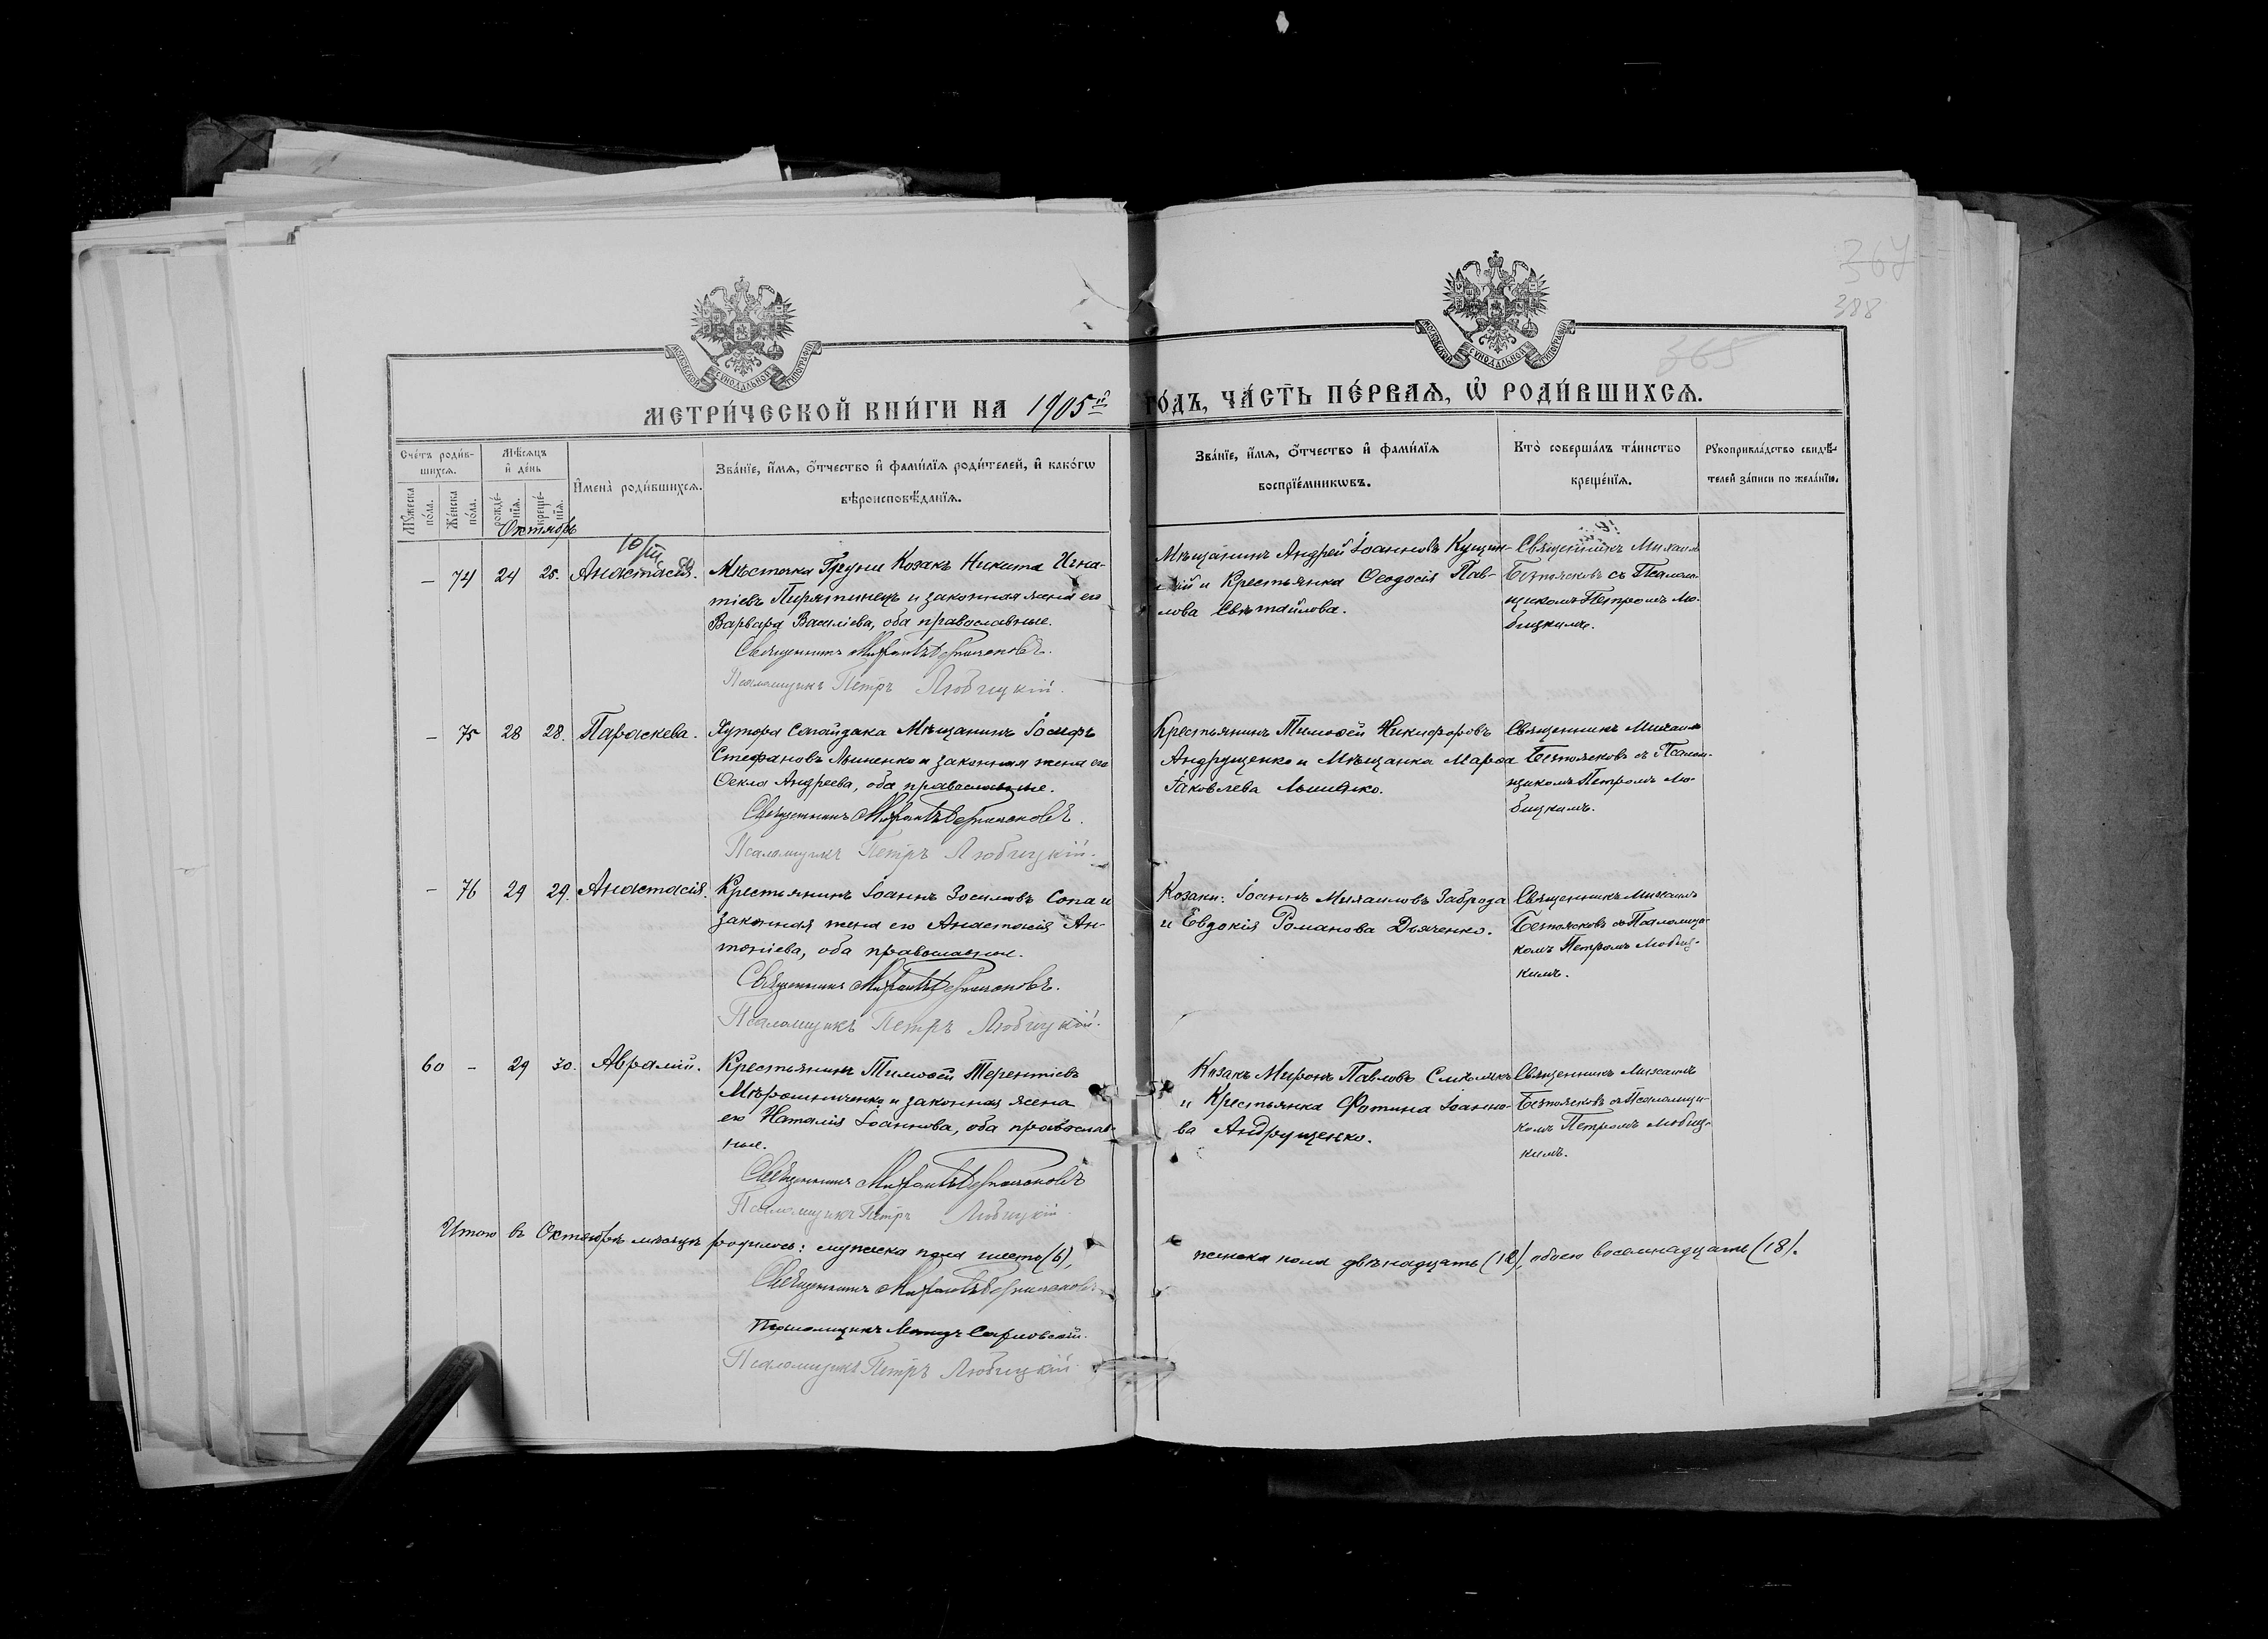 367
388
365
МОСКОВСКОЙ СѴНОДАЛЬНОЙ ТИПОГРАФІИ
МОСКОВСКОЙ СѴНОДАЛЬНОЙ ТИПОГРАФІИ
МЕТРИ́ЧЕСКОЙ КНИ́ГИ НА 1905й ГО́ДЪ, ЧА́СТЬ ПЕ́РВАѦ, Ѡ҆ РОДИ́ВШИХСѦ.
Сче́тъ роди́в-
шихсѧ.
Мѣ́сѧцъ
и҆ де́нь
И҆мена̀ роди́вшихсѧ.
Зва́нїе, и҆́мѧ, ѻ҆́тчество и҆ фами́лїѧ роди́телей, и҆ како́гѡ
вѣроисповѣ́данїѧ.
Зва́нїе, и҆́мѧ, ѻ҆́тчество и҆ фами́лїѧ
воспрїе́мникѡвъ.
Кто̀ соверша́лъ та́инство
креще́нїѧ.
Рꙋкоприкла́дство свидѣ́-
телей за́писи по жела́нїю.
Мꙋ́жеска
по́ла.
Же́нска
по́ла.
рожде́-
нїѧ.
креще́-
нїѧ.
Октябрь
10/III
– 74 24 25. Анастасія.
Мѣстечка Груни Козакъ Никита Игна-
тіевъ Пирятинецъ и законная жена его
Варвара Василіева, оба православные.
Священникъ Михаилъ Безпоясковъ.
Псаломщикъ Петръ Любицкій.
Мѣщанинъ Андрей Іоанновъ
и Крестьянка Ѳеодосія Пав-
лова Свѣтайлова.
Священникъ Михаилъ
Безпоясковъ съ Псалом-
щикомъ Петромъ Лю-
бицкимъ.
– 75 28 28. Параскева.
Хутора Сагайдака Мѣщанинъ Іосифъ
Стефановъ Линенко и законная жена его
Ѳекла Андреева, оба православные.
Священникъ Михаилъ Безпоясковъ.
Псаломщикъ Петръ Любицкій.
Крестьянинъ Тимоѳей Никифоровъ
Андрущенко и Мѣщанка Марѳа
Іаковлева Линенко.
Священникъ Михаилъ
Безпоясковъ съ Псалом-
щикомъ Петромъ Лю-
бицкимъ.
– 76 29 29. Анастасія.
Крестьянинъ Іоаннъ Зосимовъ Сопа и
законная жена его Анастасія Ан-
тоніева, оба православные.
Священникъ Михаилъ Безпоясковъ.
Псаломщикъ Петръ Любицкій.
Козаки: Іоаннъ Михаиловъ Заброда
и Евдокія Романова Дяченко.
Священникъ Михаилъ
Безпоясковъ съ Псаломщи-
комъ Петромъ Любиц-
кимъ.
60 – 29 30. Аврамій.
Крестьянинъ Тимоѳей Терентіевъ
Мѣрошниченко и законная жена
его Наталія Іоаннова, оба православ-
ные.
Священникъ Михаилъ Безпоясковъ
Псаломщикъ Петръ Любицкій.
Козакъ Миронъ Павловъ Смѣлякъ
и Крестьянка Фотина Іоанно-
ва Андрущенко.
Священникъ Михаилъ
Безпоясковъ съ Псаломщи-
комъ Петромъ Любиц-
кимъ.
Итого въ Октябрѣ мѣсяцѣ родилось: мужеска пола шесть (6), женска пола двѣнадцать (12), обоего восемнадцать (18).
Священникъ Михаилъ Безпоясковъ
Псаломщикъ
Псаломщикъ Петръ Любицкій